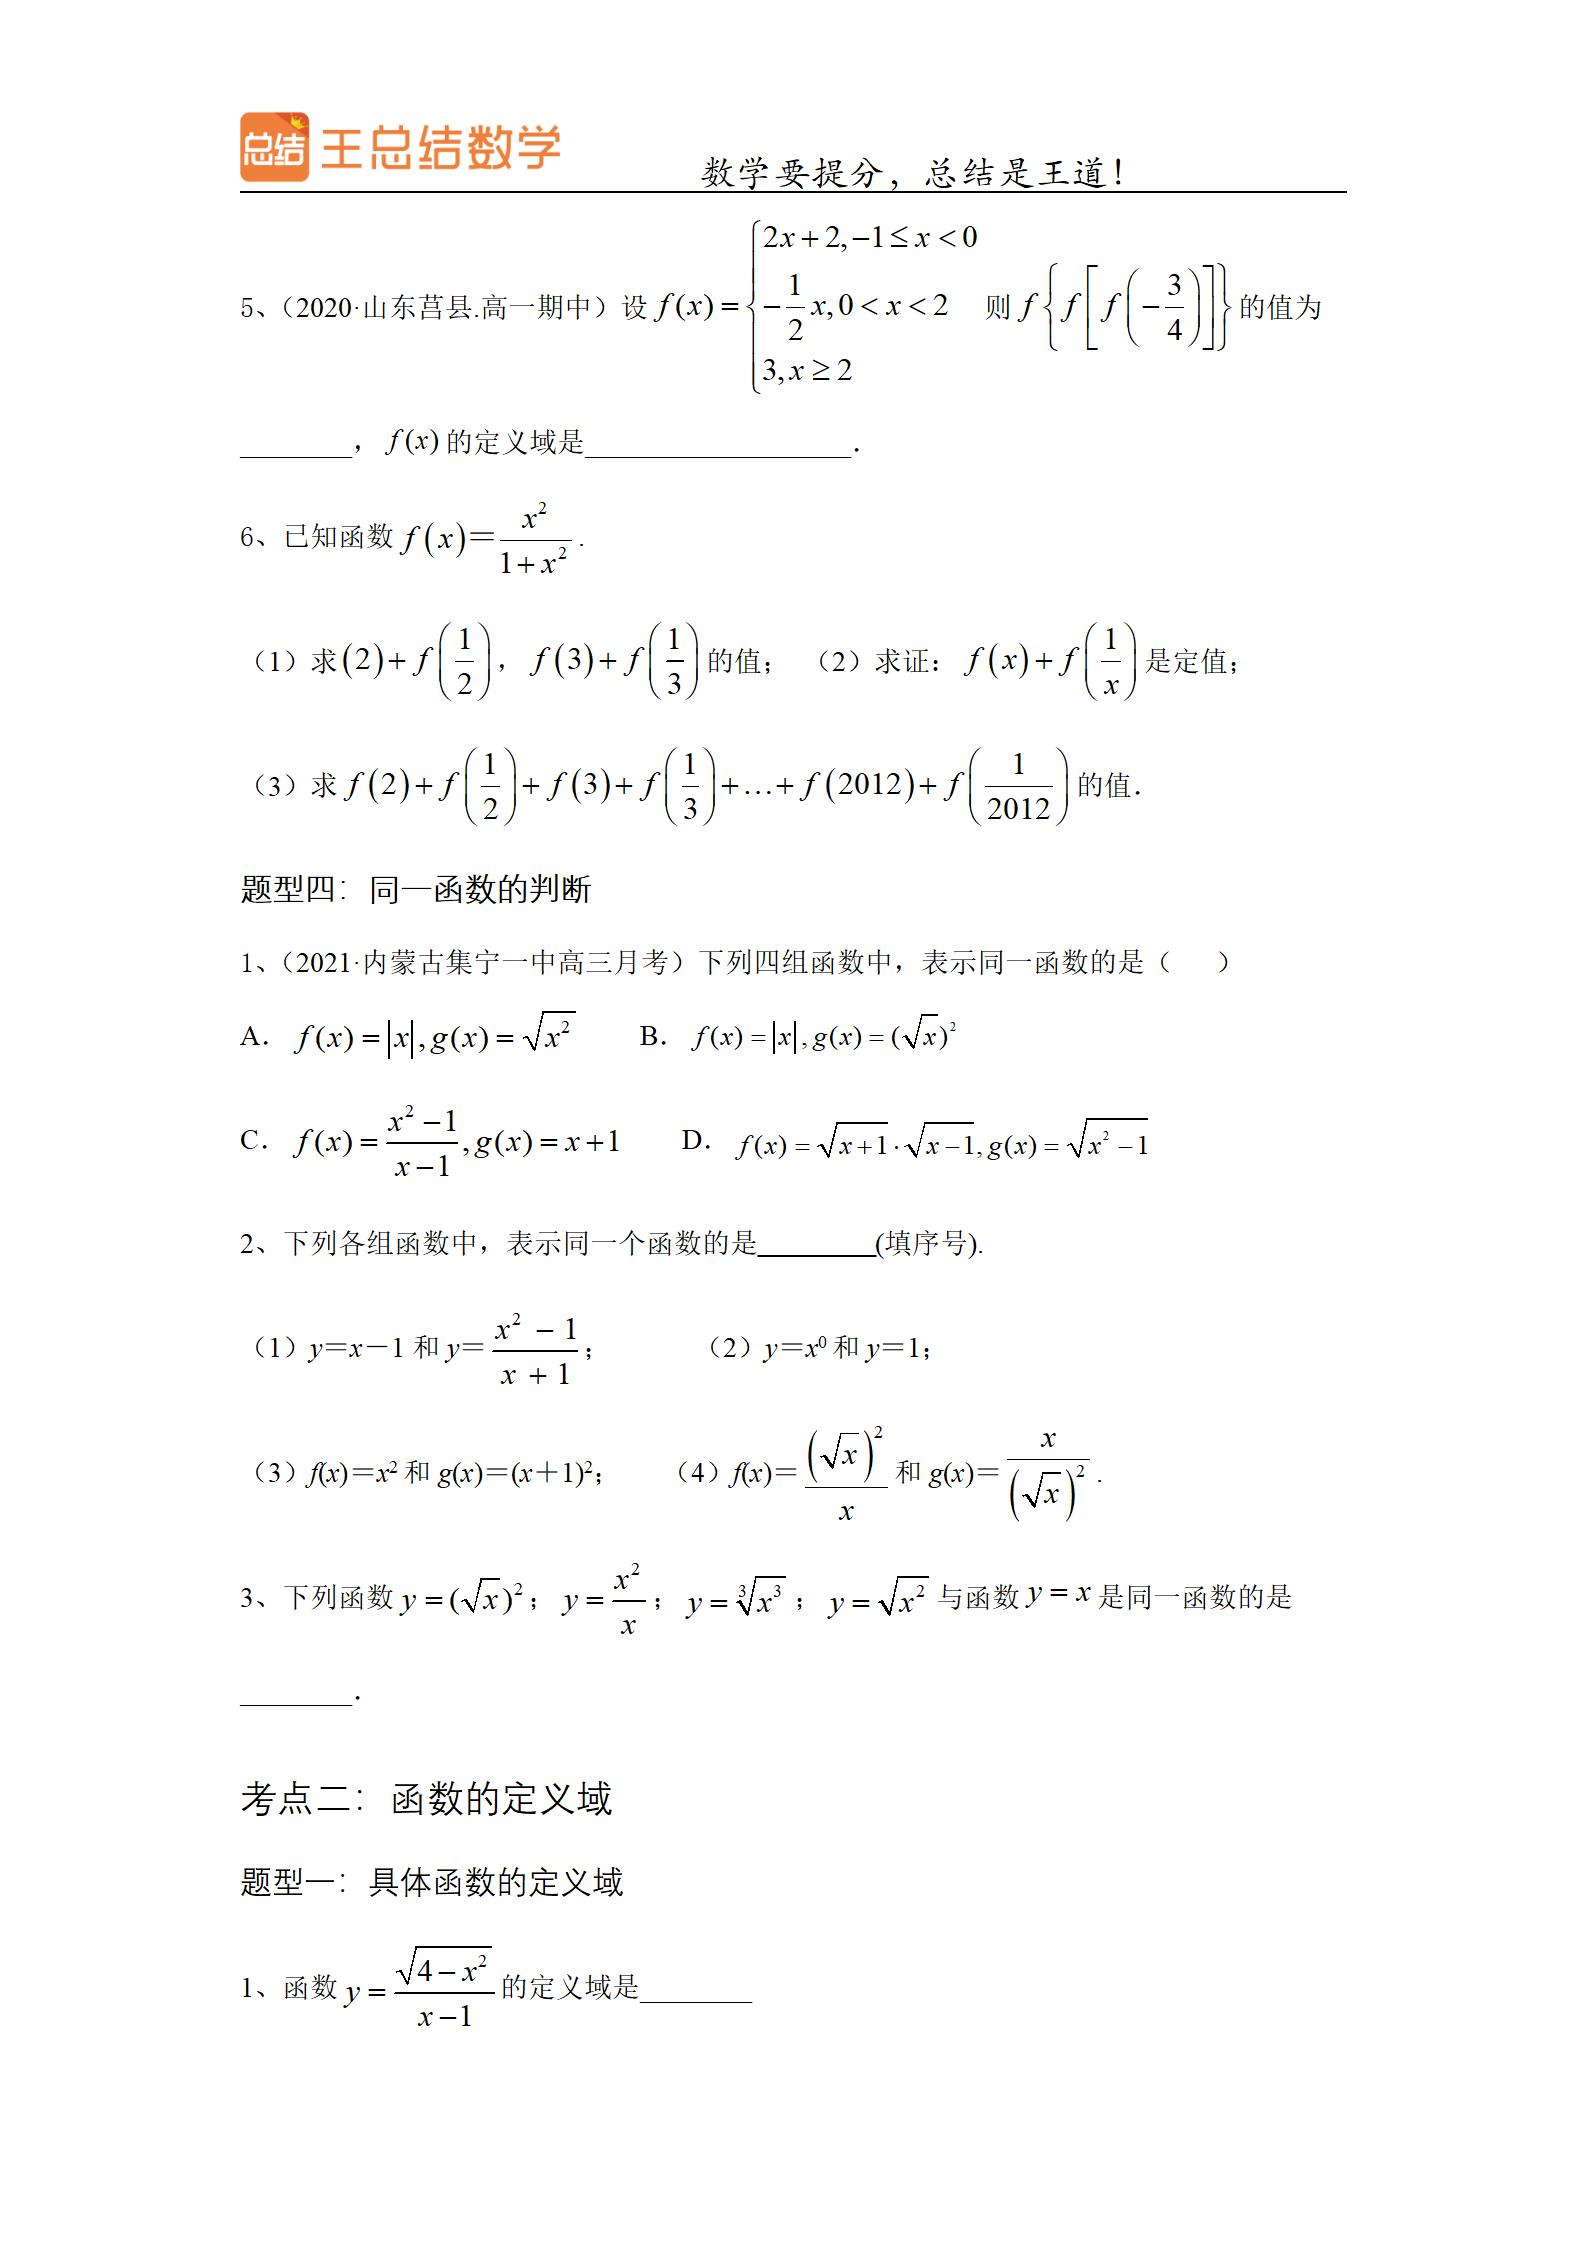 总结 王总结数学 数学要提分，总结是王道！
5、（2020·山东莒县.高一期中）设 f(x) = { 2x+2, −1≤x<0; −1/2 x, 0<x<2; 3, x≥2 则 f{f[f(−3/4)]} 的值为
________，f(x) 的定义域是___________________．
6、已知函数 f(x)＝x²/(1+x²).
（1）求(2)+f(1/2)，f(3)+f(1/3)的值； （2）求证：f(x)+f(1/x)是定值；
（3）求 f(2)+f(1/2)+f(3)+f(1/3)+…+f(2012)+f(1/2012)的值．
题型四：同一函数的判断
1、（2021·内蒙古集宁一中高三月考）下列四组函数中，表示同一函数的是（ ）
A．f(x)=|x|,g(x)=√(x²) B．f(x)=|x|,g(x)=(√x)²
C．f(x)=(x²−1)/(x−1),g(x)=x+1 D．f(x)=√(x+1)·√(x−1),g(x)=√(x²−1)
2、下列各组函数中，表示同一个函数的是________(填序号).
（1）y＝x－1 和 y＝(x²−1)/(x+1)； （2）y＝x⁰ 和 y＝1；
（3）f(x)＝x² 和 g(x)＝(x＋1)²； （4）f(x)＝(√x)²/x 和 g(x)＝x/(√x)².
3、下列函数 y=(√x)²；y=x²/x；y=∛(x³)；y=√(x²) 与函数 y=x 是同一函数的是
________．
考点二：函数的定义域
题型一：具体函数的定义域
1、函数 y=√(4−x²)/(x−1) 的定义域是________